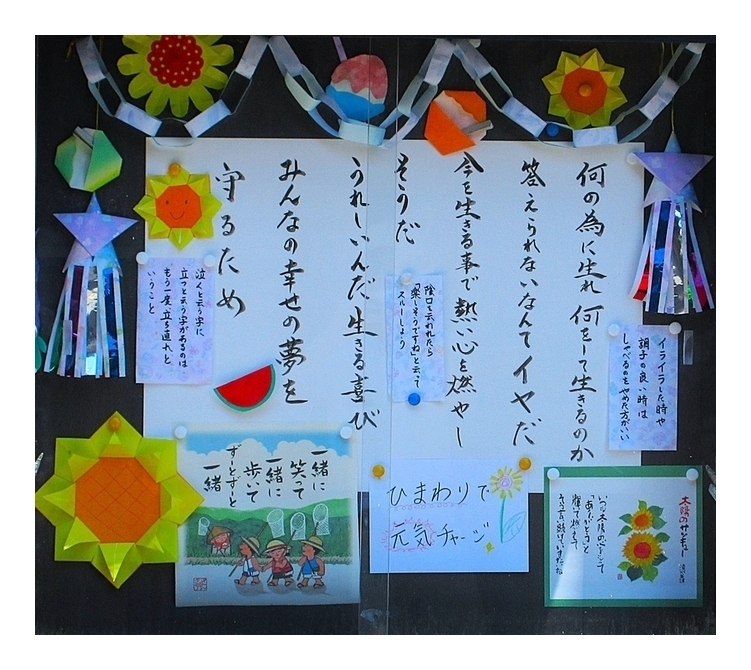 何の為に生れ 何をして生きるのか
答えられないなんてイヤだ
今を生きる事で 熱い心を燃やし
そうだ
うれしいんだ 生きる喜び
みんなの幸せの夢を
守るため
イライラした時や
調子の良い時は
しゃべるのをやめた方がいい
陰口を云われたら
「楽しそうですね」と云って
スルーしよう
泣くと云う字に
立つと云う字があるのは
もう一度立ち直れと
いうこと
一緒に
笑って
一緒に
歩いて
ずーとずーと
一緒
ひまわりで
元気チャージ
太陽のサンキュー
「ありがとう」と